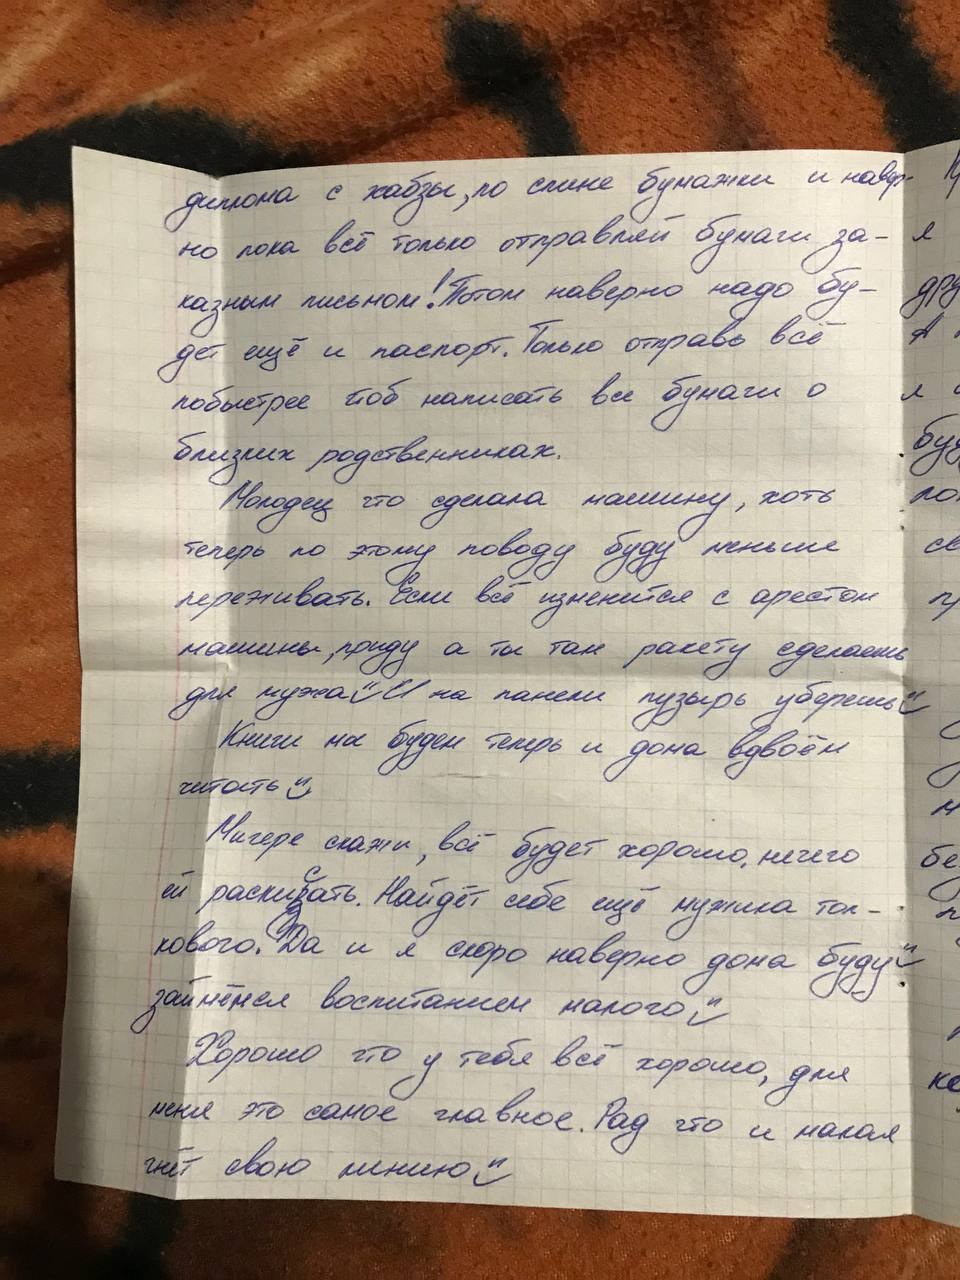 диплома с хабзы, по спине бумажки и навер-
но пока всё только отправляй бумаги за-
казным письмом! Потом наверно надо бу-
дет ещё и паспорт. Только отправь всё
побыстрее чтоб написать все бумаги о
близких родственниках.
Молодец что сделала машину, хоть
теперь по этому поводу буду меньше
переживать. Если всё изменится с арестом
машины, приду а ты там ракету сделаешь
для мужа И на панели пузырь уберешь
Книги мы будем теперь и дома вдвоём
читать
Мигере скажи, всё будет хорошо, нечего
ей раскисать. Найдёт себе ещё мужика тол-
кового. Да и я скоро наверно дома буду
займёмся воспитанием малого
Хорошо что у тебя всё хорошо, для
меня это самое главное. Рад что и малая
гнёт свою линию
я
дру
А
я
буд
пол
св
пр
м
бе
п
ке